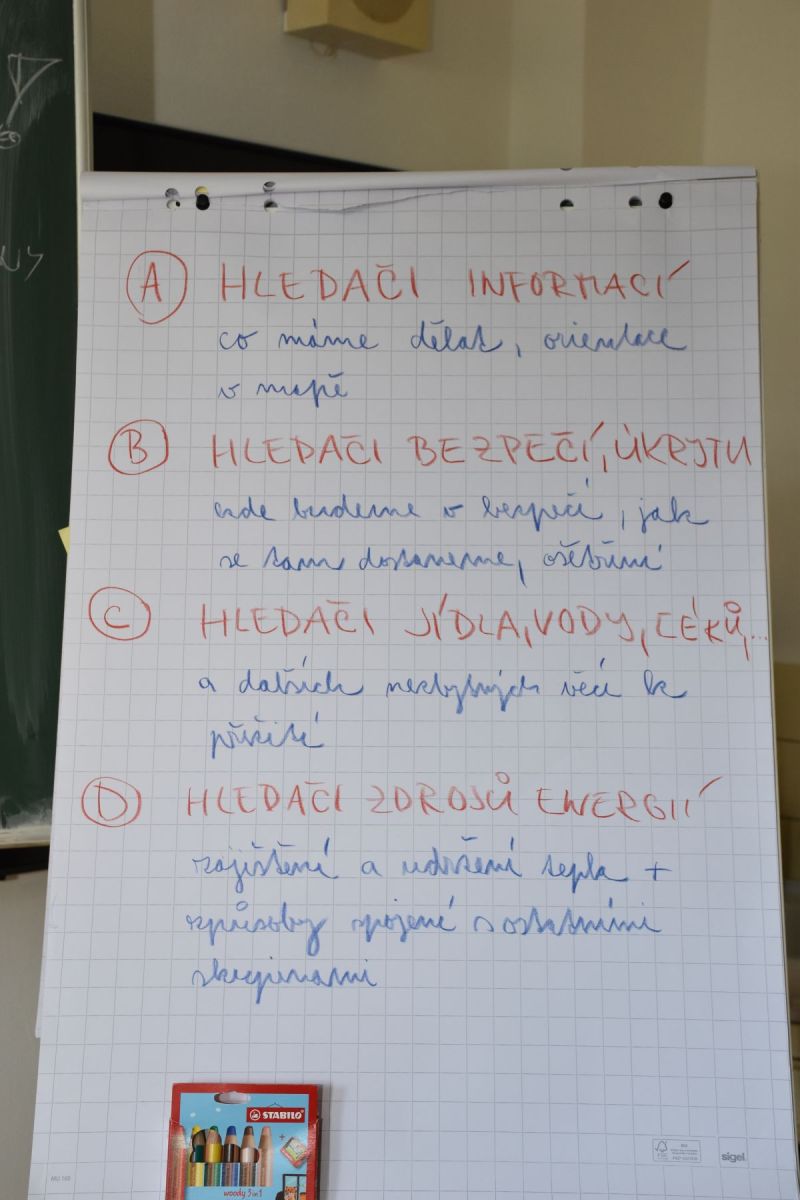 A HLEDAČI INFORMACÍ
co máme dělat, orientace
v mapě
B HLEDAČI BEZPEČÍ, ÚKRYTU
kde budeme v bezpečí, jak
se tam dostaneme, ošetření
C HLEDAČI JÍDLA, VODY, LÉKŮ,...
a dalších nezbytných věcí k
přežití
D HLEDAČI ZDROJŮ ENERGIÍ
zajištění a udržení tepla +
způsoby spojení s ostatními
skupinami
STABILO
woody 3 in 1
FSC
sigel